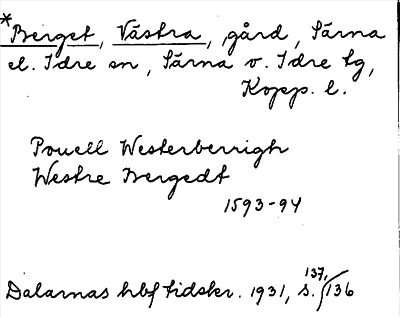 *Berget, Västra, gård, Särna
el. Idre sn, Särna o. Idre tg,
Kopp. l.
Powell Westerberrigh
Westre Bergedt
1593-94
Dalarnas hbf tidskr. 1931, s. 137, 136